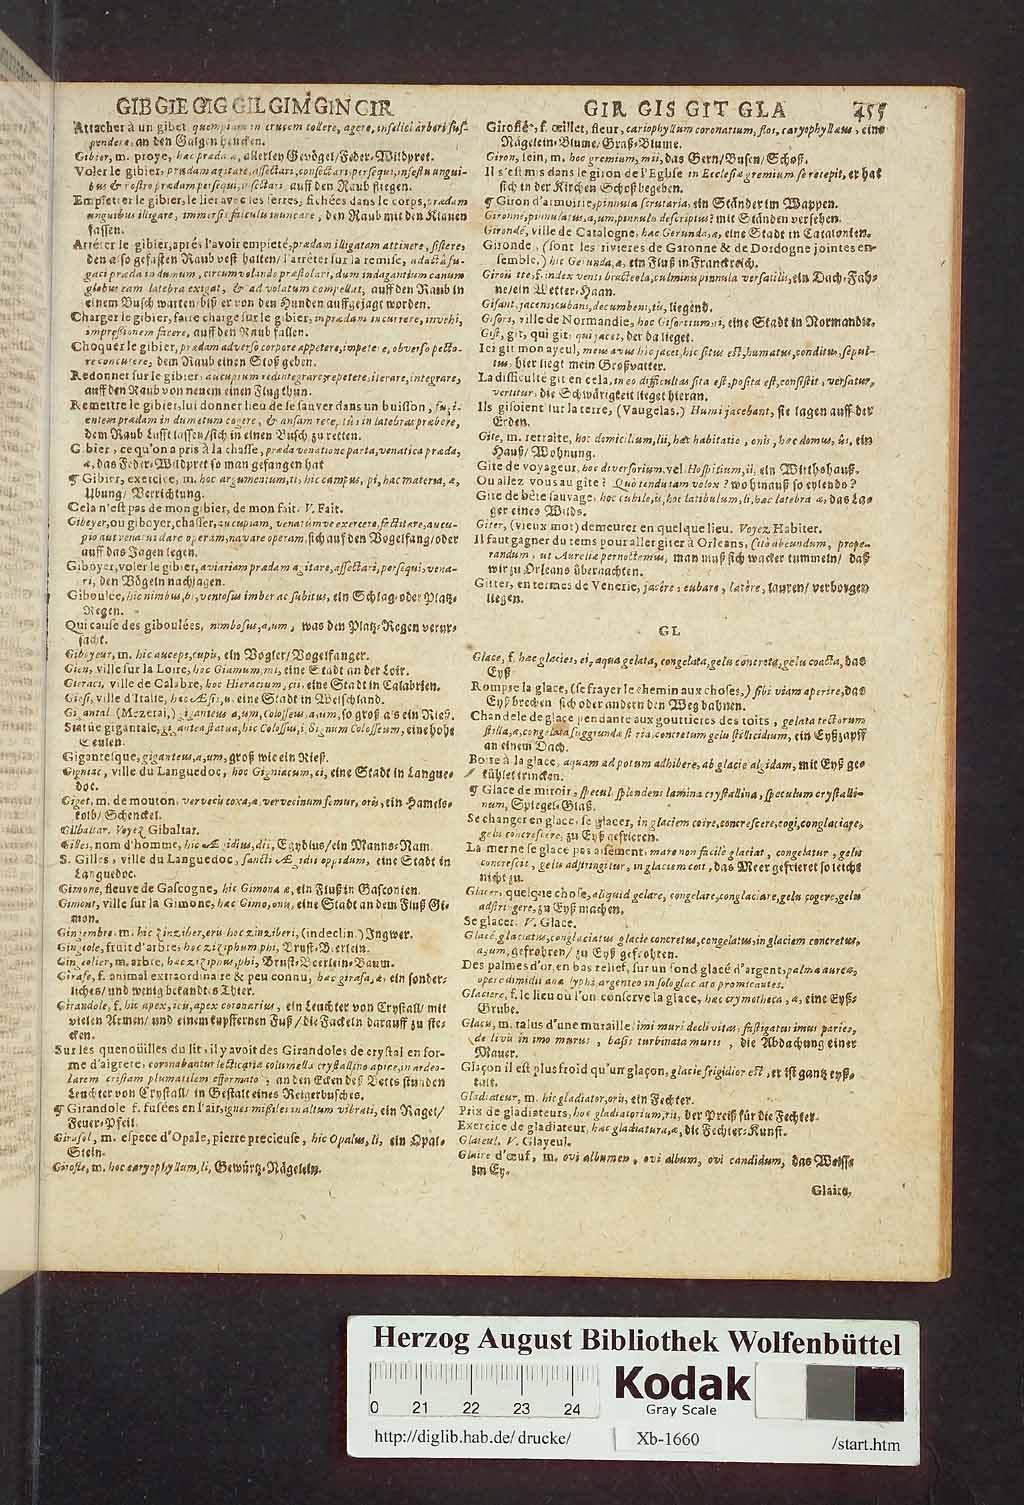 GIB GIE GIG GIL GIM GIN CIR
Attacher à un gibet quempiam in crucem tollere, agere, infelici arbori sus-
pendere, an den Galgen hencken.
Gibier, m. proye, hæc præda, æ, allerley Gevögel/Feder-Wildpret.
Voler le gibier, prædam agitare, affectari, consectari, persequi, infestis ungui-
bus & rostro prædam persequi, insectari auff den Raub fliegen.
Empieter le gibier, le lier avec les serres, fichées dans le corps, prædam
unguibus illigare, immersis faciculis inuncare, den Raub mit den Klauen
fassen.
Arrêter le gibier, aprés l'avoir empieté, prædam illigatam attinere, sistere,
den also gefasten Raub vest halten/ l'arrêter sur la remise, adactâ fu-
gaci prædâ in dumum, circumvolando præstolari, dum indagantium canum
globus eam latebrâ exigat, & ad volatum compellat, auff den Raub in
einem Busch warten/biß er von den Hunden auffgejagt worden.
Charger le gibier, faire charge sur le gibier, in prædam incurrere, invehi,
impressionem facere, auff den Raub fallen.
Choquer le gibier, prædam adverso corpore appetere, impetere, obverso pecto-
re concutere, dem Raub einen Stoß geben.
Redonner sur le gibier, aucupium redintegrare, repetere, iterare, integrare,
auff den Raub von neuem einen Flug thun.
Remettre le gibier, lui donner lieu de se sauver dans un buisson, fugi-
entem prædam in dumetum cogere, & ansam rete, tûs in latebras præbere,
dem Raub Lufft lassen/sich in einen Busch zu retten.
Gibier, ce qu'on a pris à la chasse, præda venatione parta, venatica præda,
æ, das Feder-Wildpret so man gefangen hat
¶ Gibier, exercice, m. hoc argumentum, ti, hic campus, pi, hæc materia, æ,
Ubung/ Verrichtung.
Cela n'est pas de mon gibier, de mon fait. V. Fait.
Giboyer, ou giboyer, chasser, aucupium, venatum ve exercere, factitare, aucu-
pio aut venatui dare operam, navare operam, sich auff den Vogelfang/oder
auff das Jagen legen.
Giboyer, voler le gibier, aviariam prædam agitare, affectari, persequi, vena-
ri, den Vögeln nachjagen.
Giboulée, hic nimbus, bi, ventosus imber ac subitus, ein Schlag-oder Platz-
Regen.
Qui cause des giboulées, nimbosus, a, um, was den Platz-Regen verur-
sacht.
Giboyeur, m. hic auceps, cupis, ein Vogler/Vogelfanger.
Gien, ville sur la Loire, hoc Gianum, ni, eine Stadt an der Loir.
Gieraci, ville de Calabre, hoc Hieracium, cii, eine Stadt in Calabrien.
Giesi, ville d'Italie, hoc Æsi, ii, eine Stadt in Welschland.
Gigantal (Mezerai,) giganteus a, um, Colosseus, a, um, so groß als ein Rieß.
Statüe gigantale, gigantea statua, hic Colossus, i, Signum Colosseum, eine hohe
Seulen.
Gigantesque, giganteus, a, um, groß wie ein Rieß.
Gigniac, ville du Languedoc, hoc Gigniacum, ci, eine Stadt in Langue-
doc.
Giget, m. de mouton, vervecis coxa, æ, vervecinum femur, oris, ein Hamels-
kolb/ Schenckel.
Gilbaltar. Voyez Gibaltar.
Gilles, nom d'homme, hic Ægidius, dii, Egydius/ein Manns-Nam.
S. Gilles, ville du Languedoc, sancti Ægidii oppidum, eine Stadt in
Languedoc.
Gimone, fleuve de Gascogne, hic Gimona æ, ein Fluß in Gasconien.
Gimont, ville sur la Gimone, hæc Gimo, onis, eine Stadt an dem Fluß Gi-
mon.
Gingembre, m. hic zinziber, eris hoc zinziberi, (indeclin.) Ingwer.
Gingeole, fruit d'arbre, hoc ziziphum, phi, Brust-Beerlein.
Gingeolier, m. arbre, hæc ziziphus, phi, Brust-Beerlein-Baum.
Girafe, f. animal extraordinaire & peu connu, hæc girafa, æ, ein sonder-
liches/ und wenig bekandtes Thier.
Girandole, f. hic apex, icis, apex coronarius, ein Leuchter von Crystall/ mit
vielen Armen/ und einem kupffernen Fuß/ die Fackeln darauff zu ste-
cken.
Sur les quenoüilles du lit, il y avoit des Girandoles de crystal en for-
me d'aigrete, coronabantur lecticaria columella crystallino apice, in ardeo-
larem cristam plumatilem efformato, an den Ecken deß Betts stunden
Leuchter von Crystall/ in Gestalt eines Reigerbusches.
¶ Girandole f. fusées en l'air, ignes missiles in altum vibrati, ein Raget/
Feuer-Pfeil.
Girasol, m. espece d'Opale, pierre precieuse, hic Opalus, li, ein Opal-
Stein.
Girofle, m. hoc caryophyllum, li, Gewürtz-Nägelein.
GIR GIS GIT GLA 455
Giroflé, f. œillet, fleur, cariophyllum coronarium, flos, caryophyllæus, eine
Nägelein-Blume/ Graß-Blume.
Giron, sein, m. hoc gremium, mii, das Gern/ Busen/ Schoß.
Il s'est mis dans le giron de l'Eglise in Ecclesiæ gremium se recepit, er hat
sich in der Kirchen Schoß begeben.
¶ Giron d'armoirie, pinnula scutaria, ein Ständer im Wappen.
Gironné, pinnulatus, a, um, pinnulis descriptus? mit Ständen versehen.
Gironde, ville de Catalogne, hæc Gerunda, æ, eine Stadt in Catalonien.
Gironde, (sont les rivieres de Garonne & de Dordogne jointes en-
semble,) hic Gerunda, æ, ein Fluß in Franckreich.
Giroüette, f. index venti bracteola, culminis pinnula versatilis, ein Dach-Fäh-
ne/ein Wetter-Haan.
Gisant, jacens, cubans, decumbens, tis, liegend.
Gisors, ville de Normandie, hoc Gisortium, ii, eine Stadt in Normandie.
Gist, git, qui git, qui jacet, der da lieget.
Ici git mon ayeul, meus avus hic jacet, hic situs est, humatus, conditus, sepul-
tus, hier liegt mein Großvatter.
La difficulté git en cela, in eo difficultas sita est, posita est, consistit, versatur,
vertitur, die Schwärigkeit lieget hieran.
Ils gisoient sur la terre, (Vaugelas.) Humi jacebant, sie lagen auff der
Erden.
Gite, m. retraite, hoc domicilium, lii, hæc habitatio, onis, hæc domus, ûs, ein
Hauß/ Wohnung.
Gite de voyageur, hoc diversorium, vel Hospitium, ii, ein Wirthshauß.
Ou allez vous au gite? Quò tendis tam volox? wo hinauß so eylends?
Gite de bête sauvage, hoc cubile, is, hoc latibulum, li, hæc latebra æ, das La-
ger eines Wilds.
Giter, (vieux mot) demeurer en quelque lieu. Voyez Habiter.
Il faut gagner du tems pour aller giter à Orleans, citò abeundum, prope-
randum, ut Aureliæ pernoctemus, man muß sich wacker tummeln/ daß
wir zu Orleans übernachten.
Gitter, en termes de Venerie, jacére, cubare, latére, lauren/ verborgen
liegen.
GL
Glace, f. hæc glacies, ei, aqua gelata, congelata, gelu concreta, gelu coacta, das
Eyß
Rompre la glace, (se frayer le chemin aux choses,) sibi viam aperire, das
Eyß brechen sich oder andern den Weg bahnen.
Chandele de glace pendante aux gouttieres des toits, gelata tectorum
stilla, æ, congelata suggrundæ stiria, concretum gelu stillicidium, ein Eyßzapff
an einem Dach.
Boire à la glace, aquam ad potum adhibere, ab glacie algidam, mit Eyß ge-
kühlet trincken.
¶ Glace de miroir, speculi splendens lamina crystallina, speculum crystalli-
num, Spiegel-Glaß.
Se changer en glace, se glacer, in glaciem coire, concrescere, cogi, conglaciare,
gelu concrescere, zu Eyß gefrieren.
La mer ne se glace pas aisement, mare non facilè glaciat, congelatur, gelu
concrescit, gelu adstringitur, in glaciem coit, das Meer gefrieret so leicht
nicht zu.
Glacer, quelque chose, aliquid gelare, congelare, conglaciare, gelu cogere, gelu
adstringere, zu Eyß machen.
Se glacer. V. Glace.
Glacé, glaciatus, conglaciatus glacie concretus, congelatus, in glaciem concretus,
a, um, gefrohren/ zu Eyß gefrohren.
Des palmes d'or, en bas relief, sur un fond glacé d'argent, palmæ aureæ,
opere dimidii anaglyphi, argenteo in solo glaciato promicantes.
Glaciere, f. le lieu où l'on conserve la glace, hæc crymotheca, æ, eine Eyß-
Grube.
Glacis, m. talus d'une muraille, imi muri declivitas, fastigatus imus paries,
declivis in imo murus, basis turbinata muris, die Abdachung einer
Mauer.
Glaçon il est plus froid qu'un glaçon, glacie frigidior est, er ist gantz eyß-
kalt.
Gladiateur, m. hic gladiator, oris, ein Fechter.
Prix de gladiateurs, hoc gladiatorium, rii, der Preiß für die Fechter.
Exercice de gladiateur, hæc gladiatura, æ, die Fechter-Kunst.
Glaieul. V. Glayeul.
Glaire d'œuf, m. ovi albumen, ovi album, ovi candidum, das Weisse
im Ey.
Glaire,
Herzog August Bibliothek Wolfenbüttel
0 21 22 23 24
Kodak
Gray Scale
http://diglib.hab.de/drucke/ Xb-1660 /start.htm